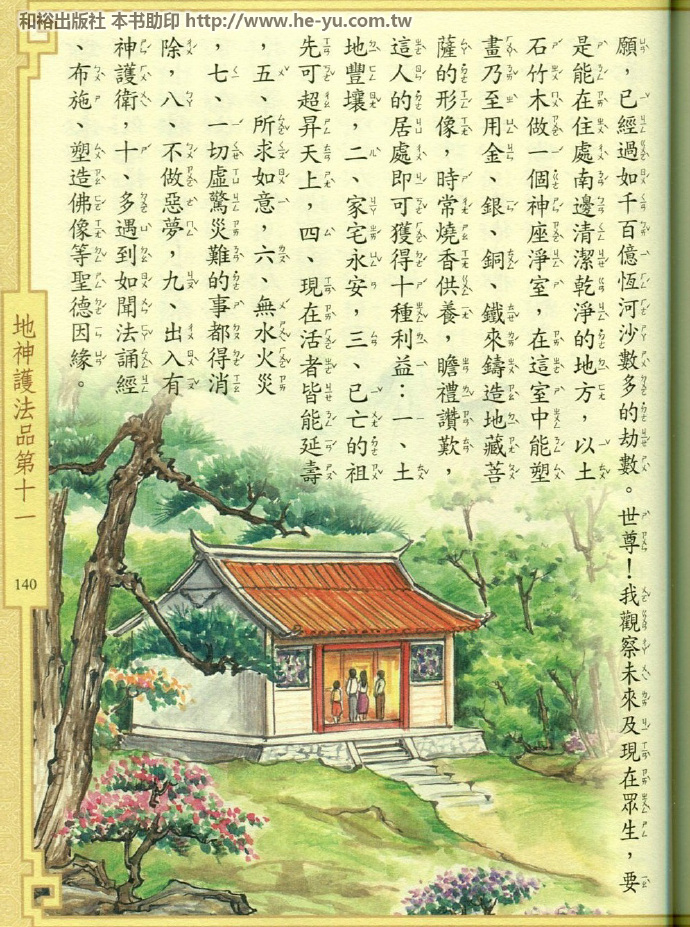 和裕出版社 本書助印 http://www.he-yu.com.tw
願，已經過如千百億恆河沙數多的劫數。世尊！我觀察未來及現在眾生，要
是能在住處南邊清潔乾淨的地方，以土
石竹木做一個神座淨室，在這室中能塑
畫乃至用金、銀、銅、鐵來鑄造地藏菩
薩的形像，時常燒香供養，瞻禮讚歎，
這人的居處即可獲得十種利益：一、土
地豐壤，二、家宅永安，三、已亡的祖
先可超昇天上，四、現在活者皆能延壽
，五、所求如意，六、無水火災
，七、一切虛驚災難的事都得消
除，八、不做惡夢，九、出入有
神護衛，十、多遇到如聞法誦經
、布施、塑造佛像等聖德因緣。
地神護法品第十一
140